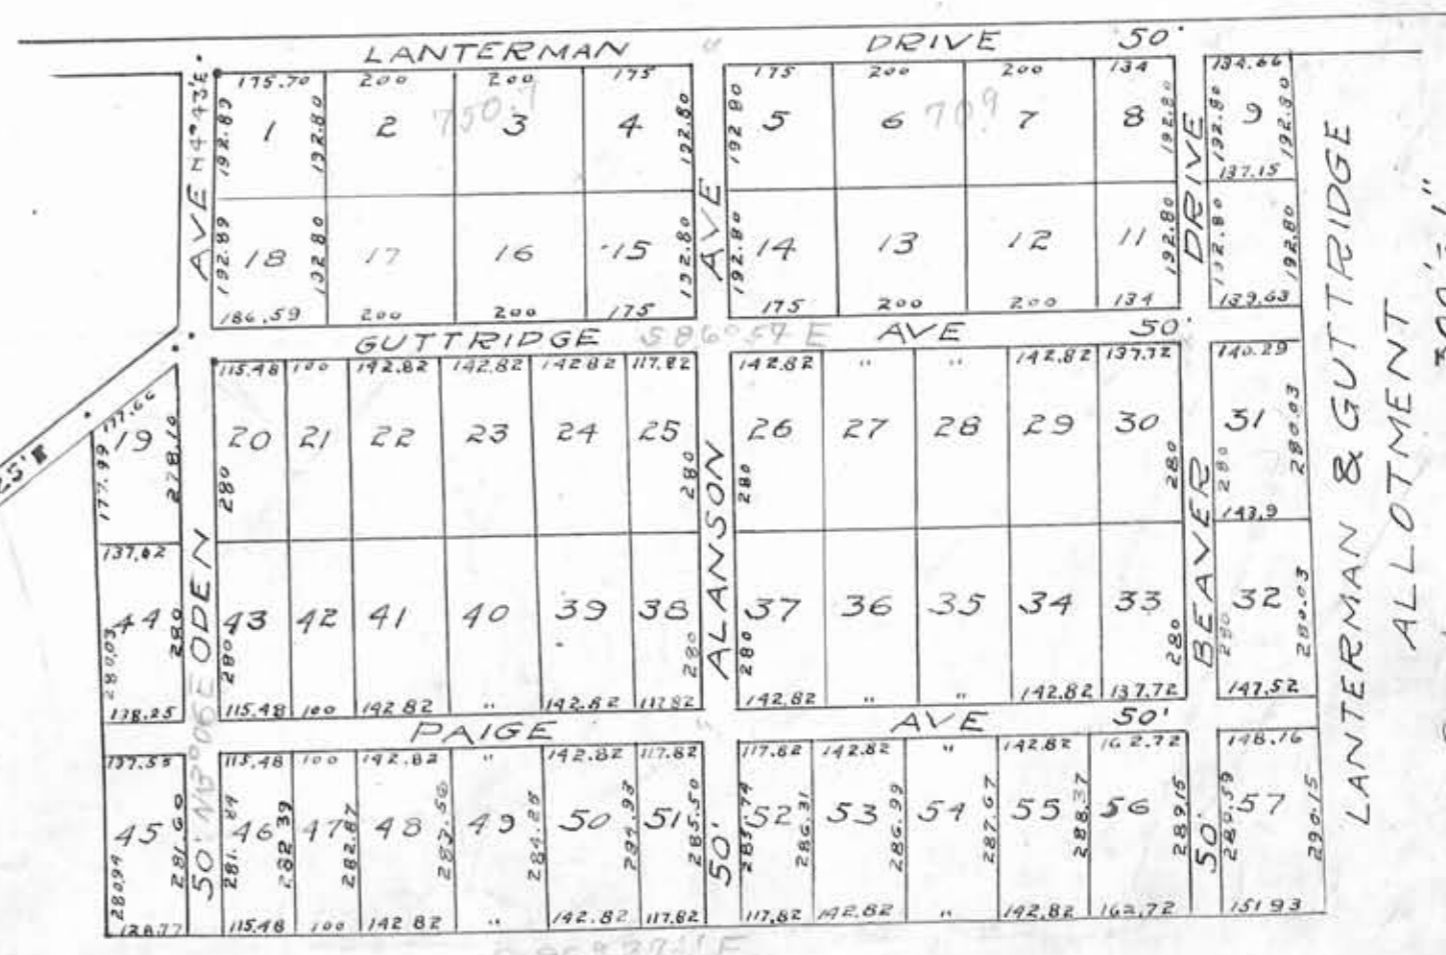 LANTERMAN DRIVE 50'
175.70 200 200 175 175 200 200 134 134.66
AVE N4°43'E 192.89 1 192.80 2 750.7 3 4 192.80 192.80 5 6 709 7 8 192.80 192.80 9 192.80
137.15
192.89 18 192.80 17 16 15 192.80 AVE 192.80 14 13 12 11 192.80 DRIVE 192.80 192.80
186.59 200 200 175 175 200 200 134 139.63
GUTTRIDGE S86°57E AVE 50'
115.48 100 142.82 142.82 142.82 117.82 142.82 " " 142.82 137.72 140.29
177.66
177.99 19 278.10 20 21 22 23 24 25 26 27 28 29 30 31 280.03
280 280 280 280 280
143.9
137.62
44 43 42 41 40 39 38 37 36 35 34 33 32
280.03 280 280 280 280 280 280 280.03
138.25 115.48 100 142.82 " 142.82 117.82 142.82 " " 142.82 137.72 147.52
ODEN
50' N3°06E
ALANSON
50'
BEAVER
50'
PAIGE AVE 50'
137.55 115.48 100 142.82 " 142.82 117.82 117.82 142.82 " 142.82 162.72 148.16
45 46 47 48 49 50 51 52 53 54 55 56 57
280.94 281.60 281.84 282.39 282.87 283.56 284.25 284.93 285.50 285.74 286.31 286.99 287.67 288.37 289.15 289.59 290.15
138.77 115.48 100 142.82 " 142.82 117.82 117.82 142.82 " 142.82 162.72 151.93
LANTERMAN & GUTTRIDGE
ALLOTMENT